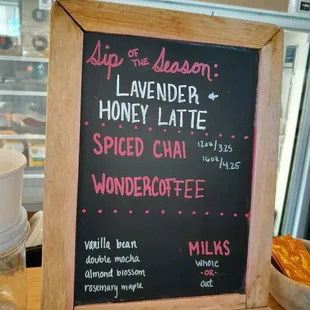 Sip OF THE Season:
LAVENDER +
HONEY LATTE
SPICED CHAI 12oz/3.25
16oz/4.25
WONDERCOFFEE
vanilla bean
double mocha
almond blossom
rosemary maple
MILKS
whole
-OR-
oat